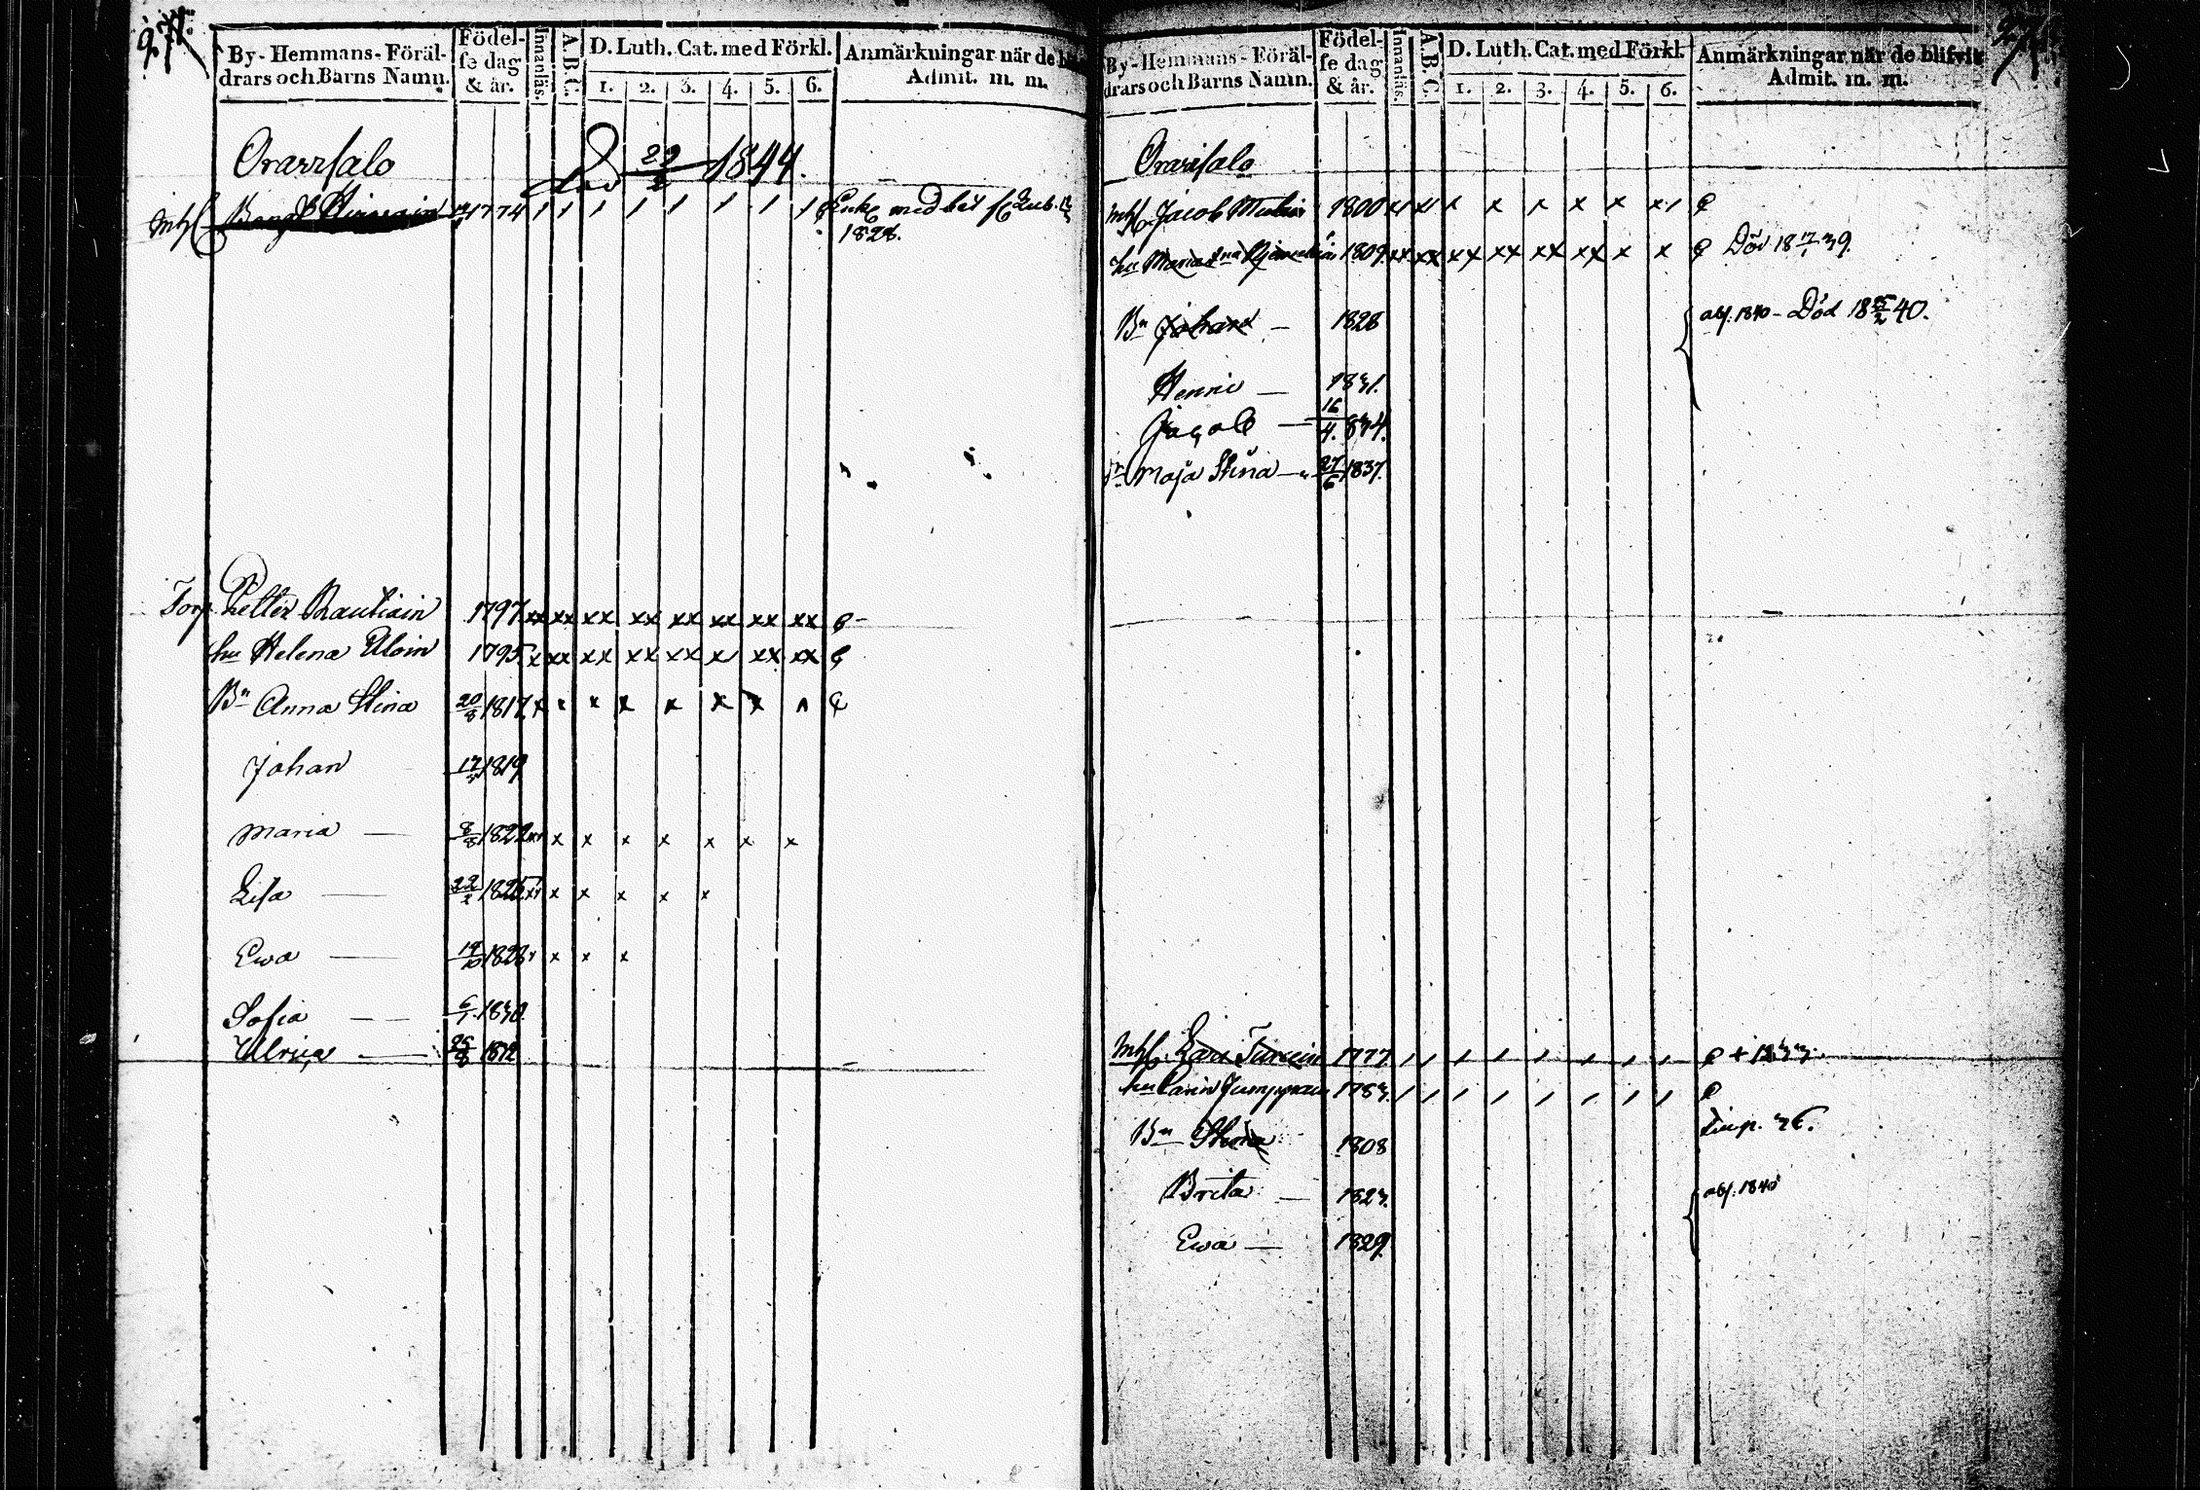 271.
By-Hemmans-Föräl-
drars och Barns Namn.
Födel-
se dag
& år.
Innanläs.
A.B.C.
D. Luth. Cat. med Förkl.
1. 2. 3. 4. 5. 6.
Anmärkningar när de
Admit. m. m.
Oravisalo
död 29/2 1844.
Bengt 1774 / / / / / / / / Enke med
1828.
Torp. Petter Rautiain 1797 xx xx xx xx xx xx xx xx
hu Helena Uloin 1795 x xx xx xx xx x xx xx
Bn Anna Stina 20/8 1817 x x x x x x x
Johan 17/ 1819
Maria — 8/8 1822 x x x x x x x
Lisa — 22/2 1825 xx x x x x x
Ewa — 19/10 1828 x x x x
Sofia — 6/1 1830
Ulrica — 1832
By-Hemmans-Föräl-
drars och Barns Namn.
Födel-
se dag
& år.
Innanläs.
A.B.C.
D. Luth. Cat. med Förkl.
1. 2. 3. 4. 5. 6.
Anmärkningar när de blifvit
Admit. m. m.
Oravisalo
Jacob 1800 x x x x x x
hu Maria 1809 xx xx xx xx xx xx x x Död 18 17/1 39.
Bn Johan — 1828 abs. 1840 - Död 18 25/2 40.
Henric — 1831.
Jacob — 16/4. 834.
Maja Stina — 27/6 1837.
Lars Turuin 1777 / / / / / / / / + 1833.
hu Carin Jumppain 1783. / / / / / / / /
Bn Stina 1808 36.
Brita — 1823. abs. 1840
Ewa — 1829.